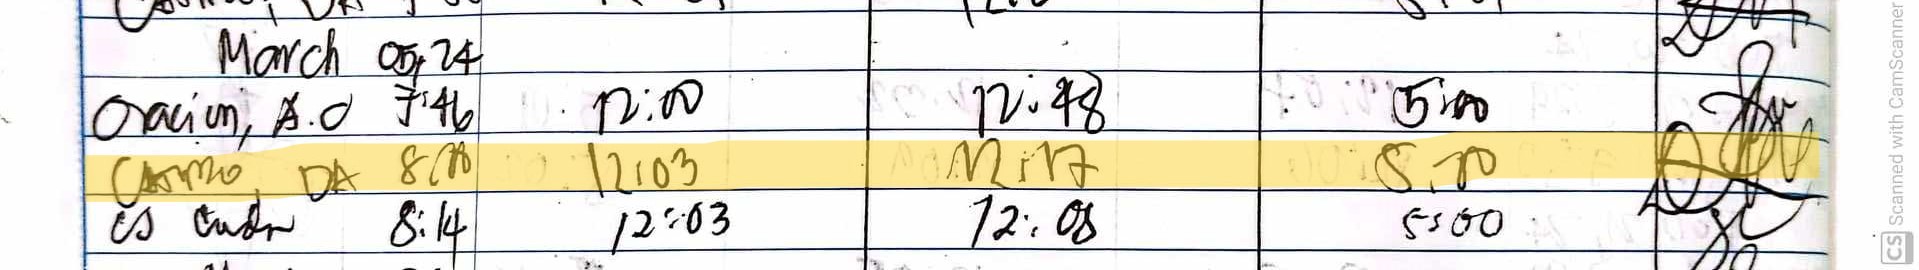 March 05, 24
Oracion, A.O 7:46 12:00 12:48 5:00
Castro, DA 8:00 12:03 12:17 5:00
CS 8:14 12:03 12:08 5:00
CS Scanned with CamScanner